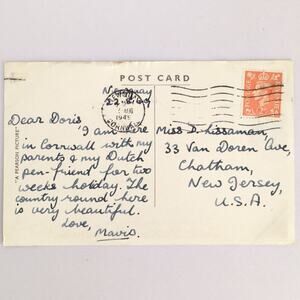 POST CARD
NEWQUAY
CORNWALL
1949
Newquay
Dear Doris,
I am here
in Cornwall with my
parents & my Dutch
pen friend for two
weeks holiday. The
country round here
is very beautiful.
Love,
Mavis.
Miss D. Lissaman,
33 Van Doren Ave,
Chatham,
New Jersey,
U.S.A.
"A PEARSON PICTURE"